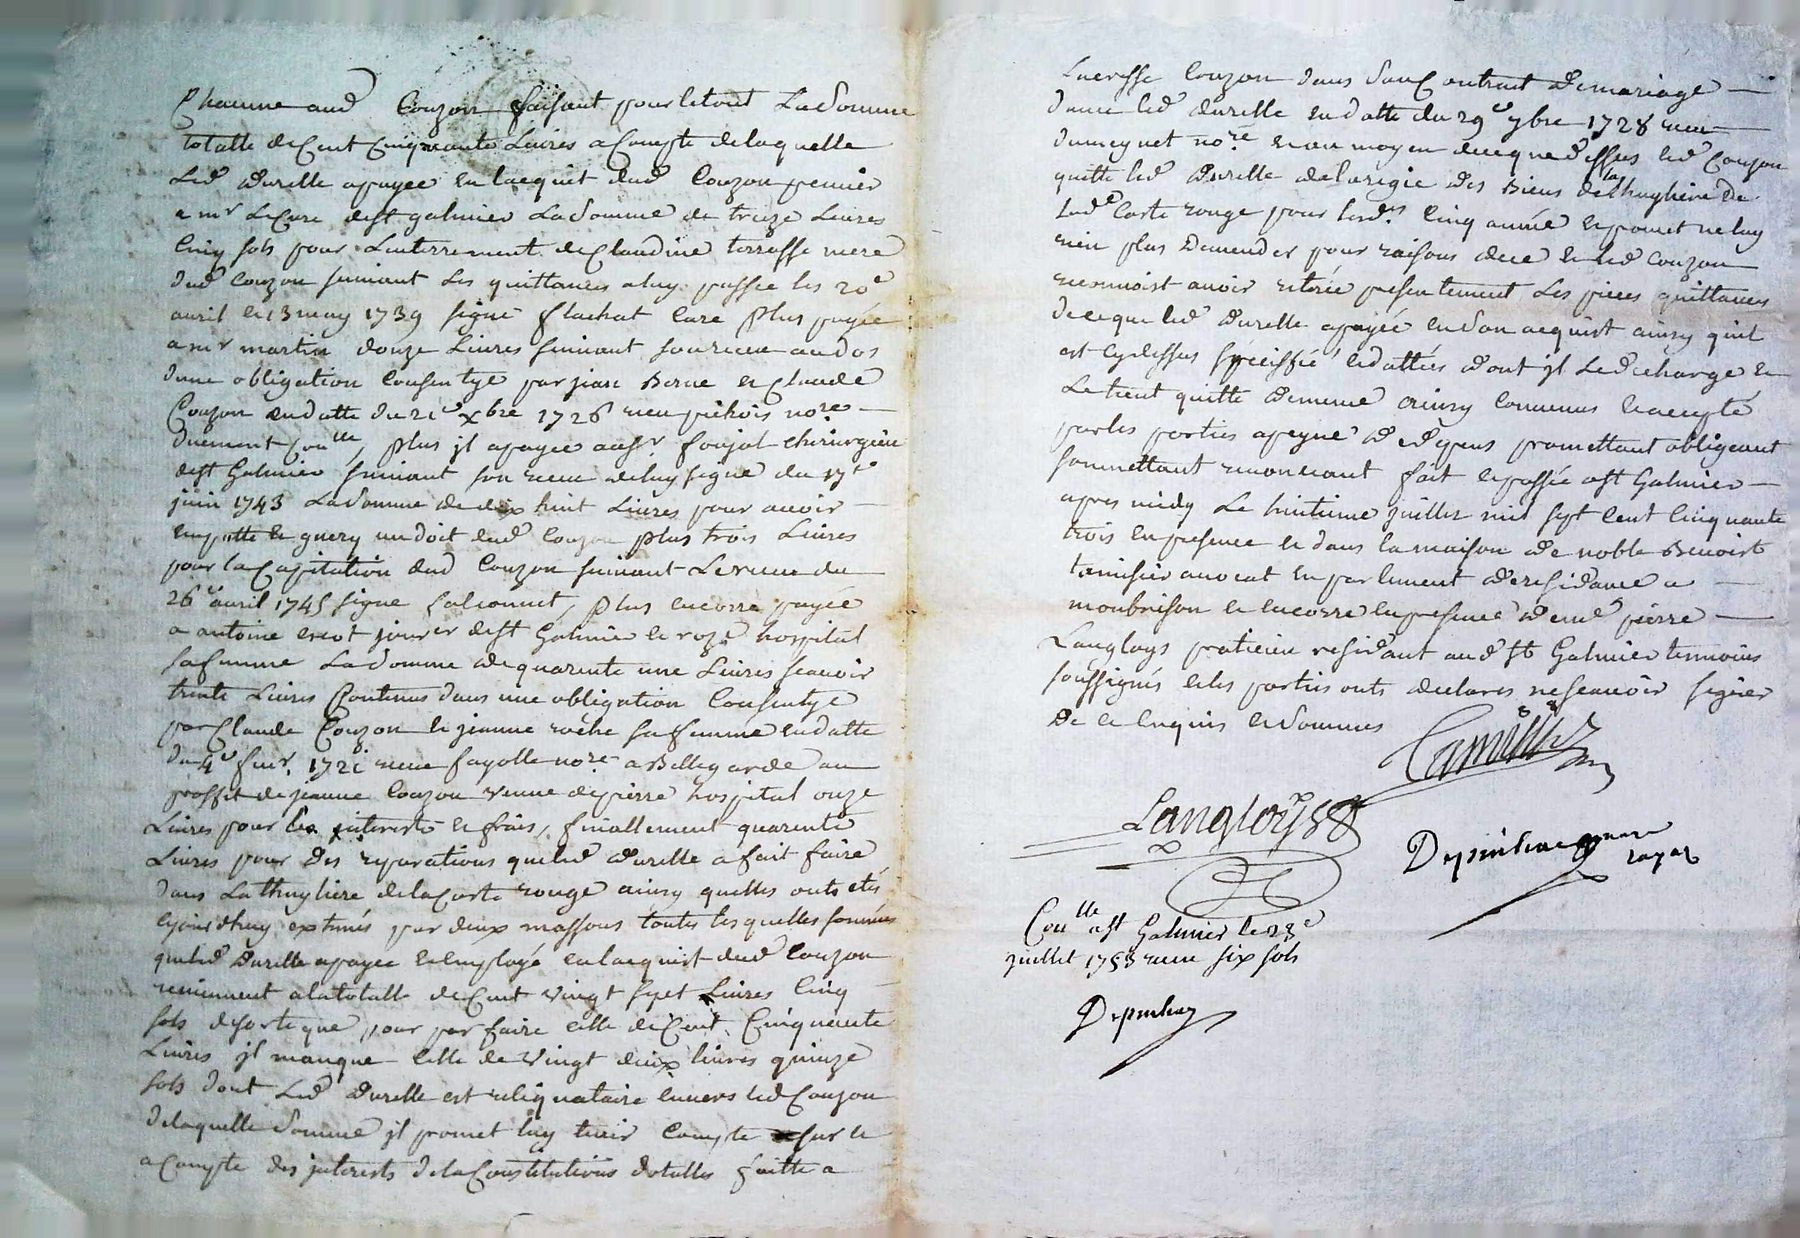 Chacune aud Couzon faisant pour le tout La Somme
totalle de Cent Cinquante Livres a Compte de laquelle
Led Durelle a payée en lacquit dud Couzon
a mr Le Cure de st galmier La Somme de treize Livres
Cinq sols pour Lenterrement de Claudine terrasse mere
dud Couzon suivant Les quittances a luy passée les 20e
avril et 13 may 1739 signé flachat Curé plus payée
a mr martin douze Livres suivant son receu au dos
dune obligation Consentye par jean Berne et Claude
Couzon en datte du xbre 1726 receu nore
duement Conlle, plus jl a payée au sr foujol chirurgien
de st Galmier suivant son receu de luy signé du 17e
juin 1743 La Somme de dix huit Livres pour avoir
guery un doit dud Couzon plus trois Livres
pour la Capitation dud Couzon suivant Le receu du
26e avril 1745 signe falconnet, plus encorre payée
a antoine jour er de st Galmier et roze hospital
sa femme La Somme de quarente une Livres scavoir
trente Livres Contenus dans une obligation Consentye
par Claude Couzon et jeanne roche sa femme en datte
du 4e fevr. 1721 receue fayolle nore a Bellegarde au
proffit de jeanne Couzon veuve de pierre hospital onze
Livres pour les interests et frais, finallement quarente
Livres pour des reparations que led Durelle a fait faire
dans La thuyliere de la Corte rouge ainsy quelles ont etés
ejourdhuy extimés par deux massons toutes lesquelles sommes
que led Durelle a payée et employé en lacquist dud Couzon
reviennent a la totalle de Cent vingt sept Livres Cinq
sols de sorte que pour parfaire celle de Cent Cinquente
Livres jl manque celle de vingt deux livres quinze
sols dont Led Durelle est reliquataire envers led Couzon
de laquelle Somme jl promet luy tenir Compte sur le
a Compte des jnterests de la Constitutions dotalles faitte a
Couzon dans son Contrat de mariage
avec led Durelle en datte du 29e 9bre 1728 receu
dumeynet nore et au moyen de ce que dessus led Couzon
quitte led Durelle de la regie des Biens de la thuyliere de
lad Corte rouge pour lesd. Cinq année et promet ne luy
rien plus Demender pour raisons de ce et led Couzon
reconnoist avoir retirée presentement Les pieces quittances
de ce que led Durelle a payée en son acquist ainsy quil
est cy dessus speciffié et dattées dont jl Led decharge et
Le tient quitte de meme ainsy Convenus et accepté
par les parties a peyne de depens promettant obligeant
soumettant renonciant fait et passée a st Galmier
apres midy Le huitieme juillet mil sept Cent Cinquante
trois en presence et dans la maison de noble Benoist
avocat en parlement de residance a
monbrison et encorre en presence dud pierre
Langloys praticien residant aud st Galmier temoins
soussignés et les parties onts declares ne scavoir signer
De ce Enquis et Sommes
Langloys
Depinhac
Conlle a st Galmier le 13e
juillet 1753 receu six sols